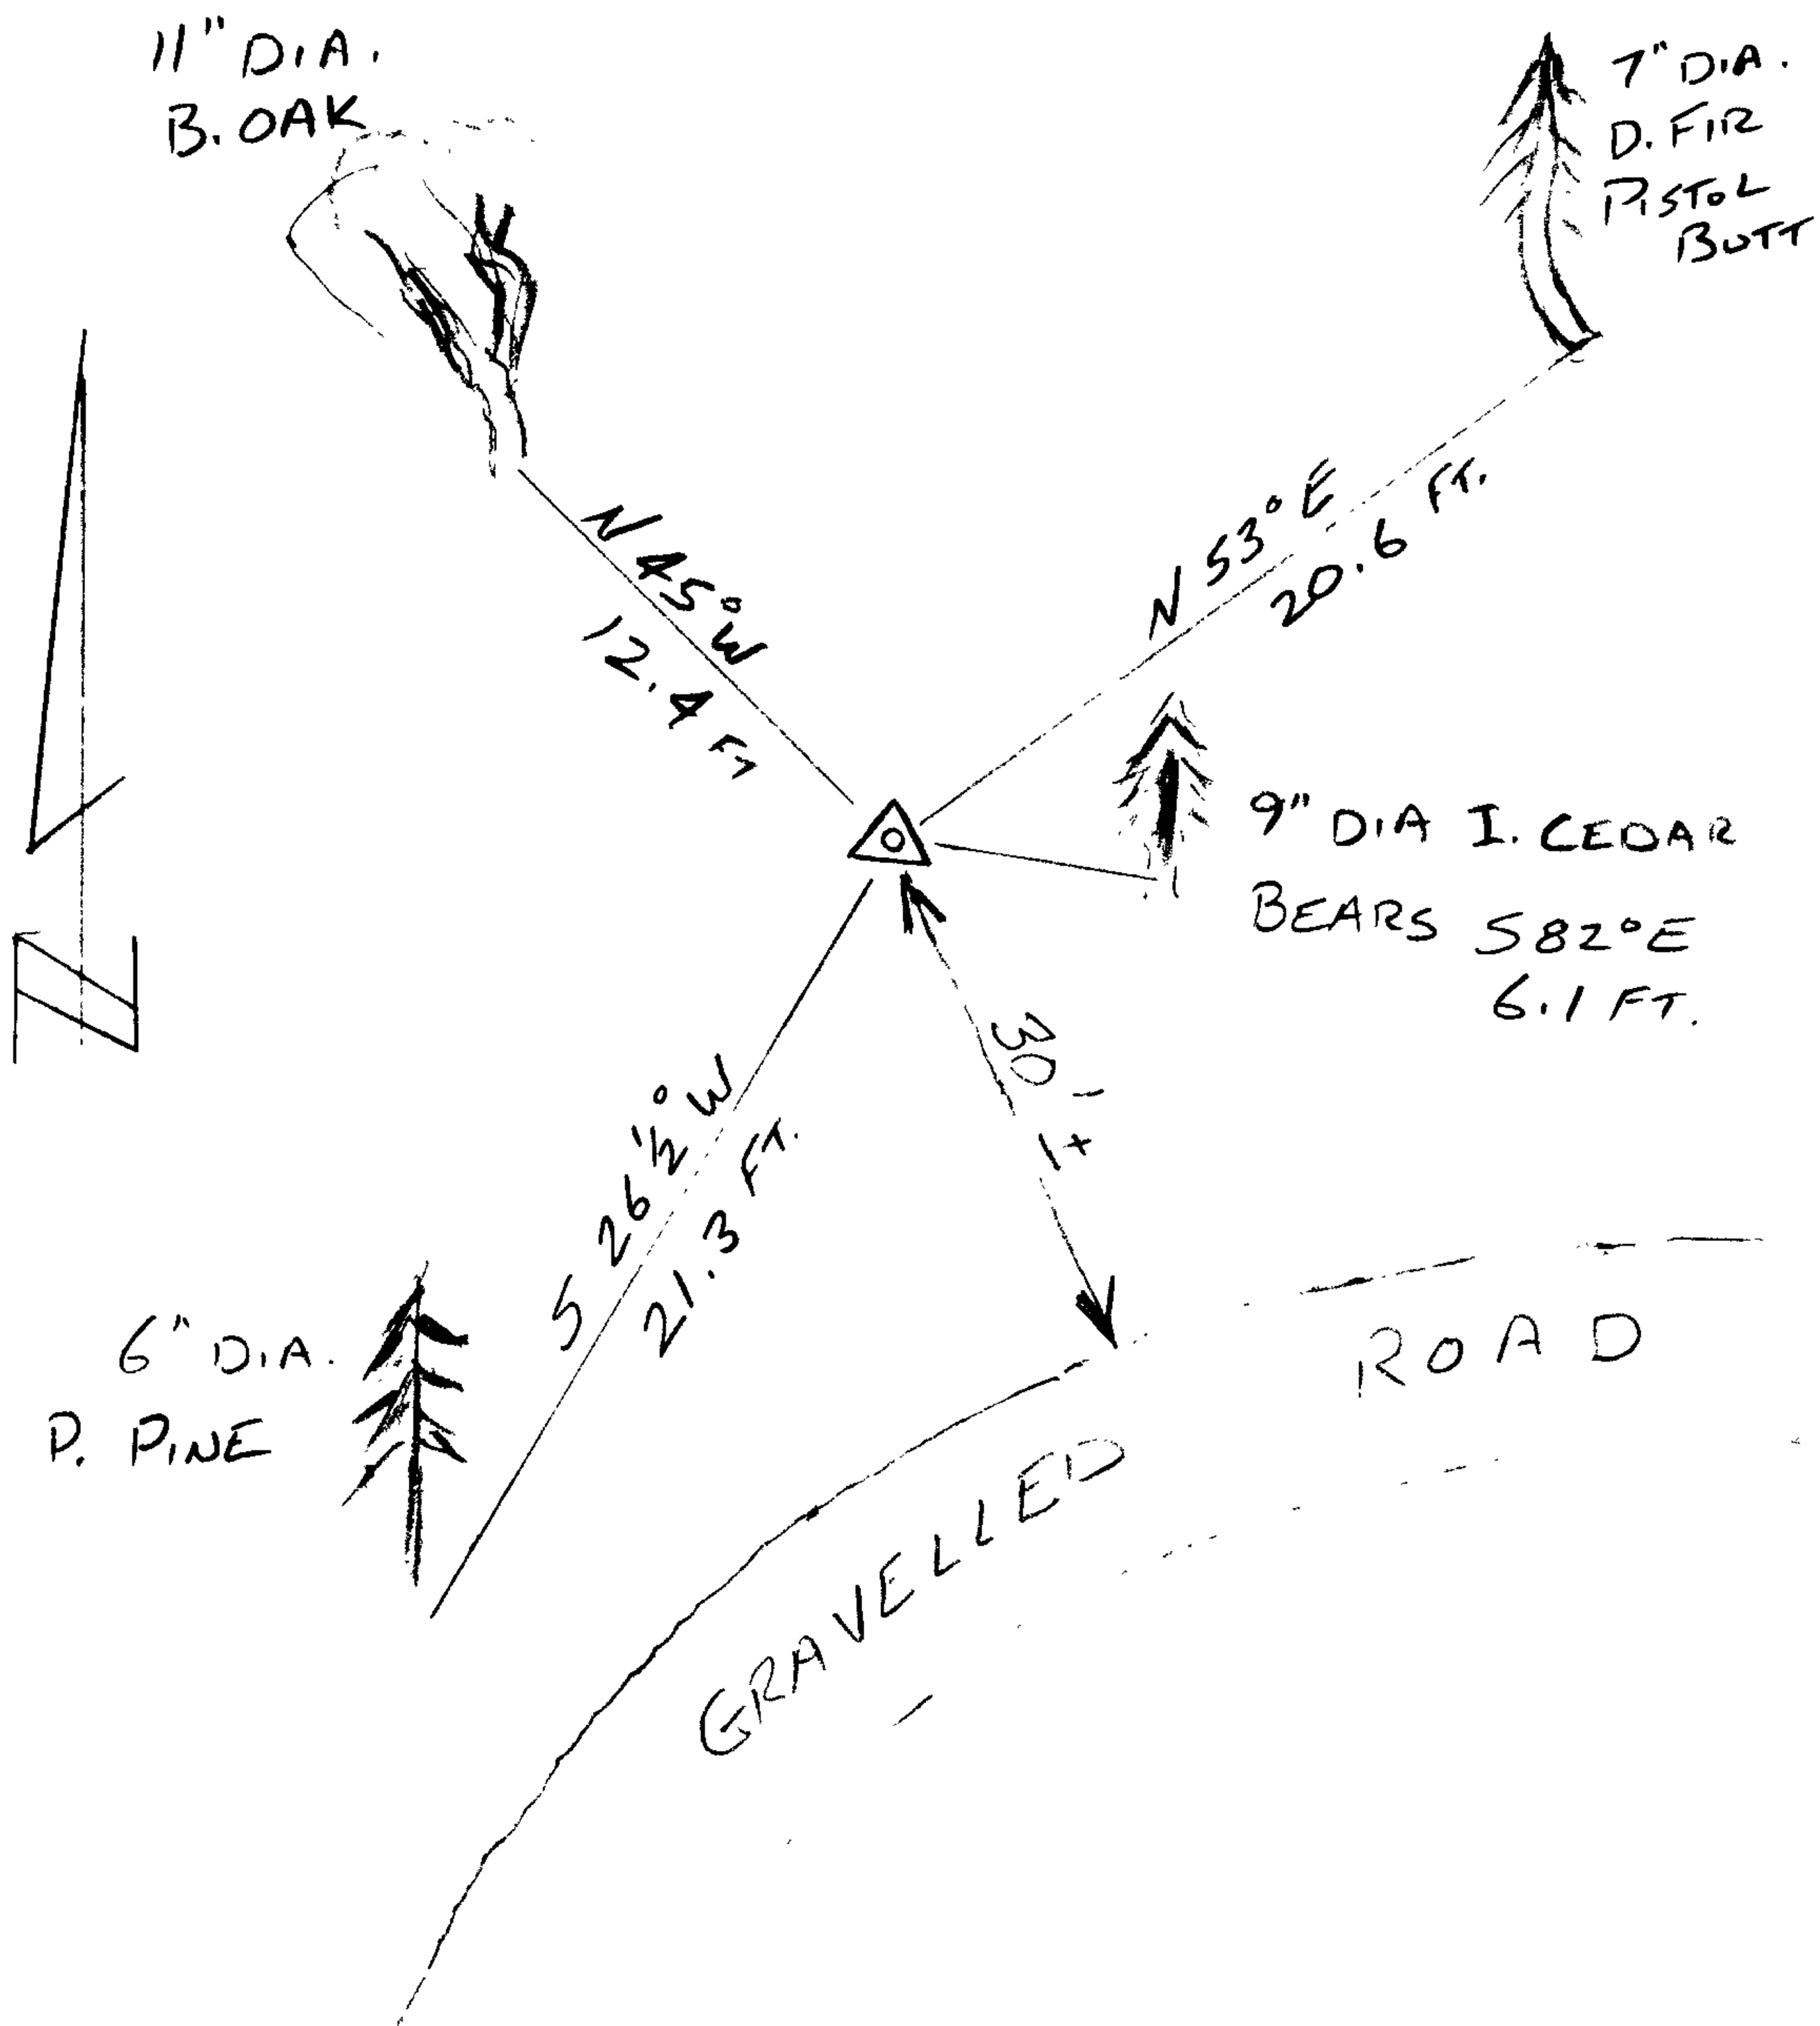 11" DIA.
B. OAK
7" DIA.
D. FIR
PISTOL
BUTT
N 45° W
12.4 FT
N 53° E
20.6 FT.
9" DIA I. CEDAR
BEARS S82°E
6.1 FT.
N
30' ±
S 26 ½° W
21.3 FT.
6" DIA.
P. PINE
GRAVELLED ROAD